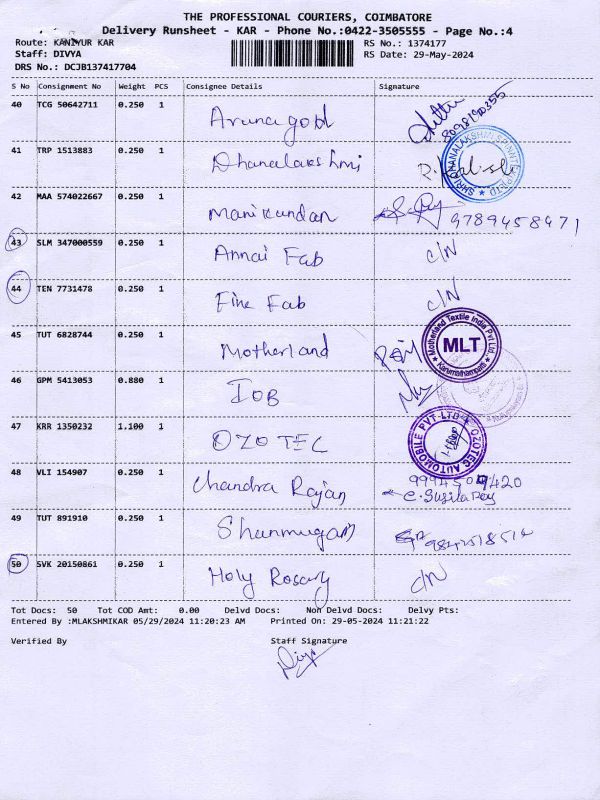 THE PROFESSIONAL COURIERS, COIMBATORE
Delivery Runsheet - KAR - Phone No.:0422-3505555 - Page No.:4
Route: KANIYUR KAR RS No.: 1374177
Staff: DIVYA RS Date: 29-May-2024
DRS No.: DCJB137417704
S No Consignment No Weight PCS Consignee Details Signature
40 TCG 50642711 0.250 1 Aruna gold
41 TRP 1513883 0.250 1 Dhanalakshmi
42 MAA 574022667 0.250 1 Manikandan 9789458471
43 SLM 347000559 0.250 1 Annai Fab C/N
44 TEN 7731478 0.250 1 Fine Fab C/N
45 TUT 6828744 0.250 1 Motherland Motherland Textile India Pvt Ltd. MLT Karumathampatti
46 GPM 5413053 0.880 1 IOB
47 KRR 1350232 1.100 1 OZOTEC OZOTEC AUTOMOBILE PVT-LTD
48 VLI 154907 0.250 1 Chandra Rajan
49 TUT 891910 0.250 1 Shanmugam
50 SVK 20150861 0.250 1 Holy Rosary C/N
Tot Docs: 50 Tot COD Amt: 0.00 Delvd Docs: Non Delvd Docs: Delvy Pts:
Entered By :MLAKSHMIKAR 05/29/2024 11:20:23 AM Printed On: 29-05-2024 11:21:22
Verified By Staff Signature